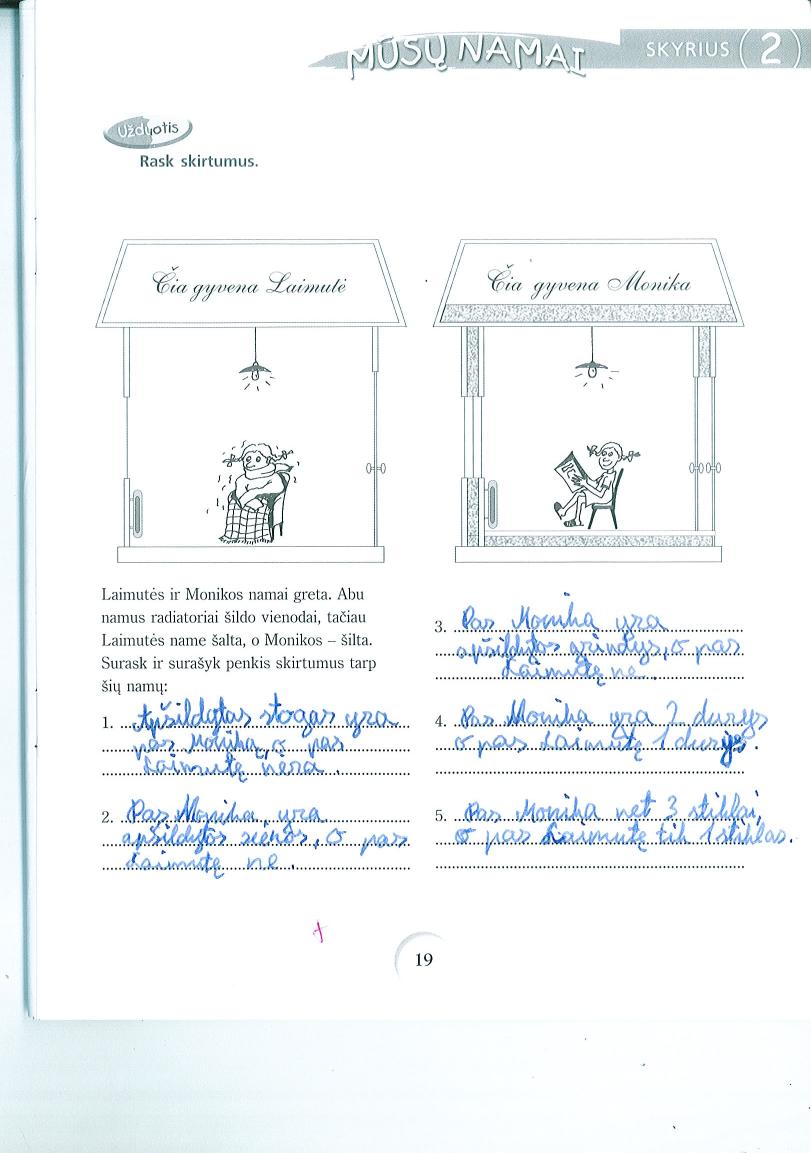 MŪSŲ NAMAI
SKYRIUS 2
Užduotis
Rask skirtumus.
Čia gyvena Laimutė
Čia gyvena Monika
Laimutės ir Monikos namai greta. Abu
namus radiatoriai šildo vienodai, tačiau
Laimutės name šalta, o Monikos – šilta.
Surask ir surašyk penkis skirtumus tarp
šių namų:
1. Apšildytas stogas yra
pas Moniką, o pas
Laimutę nėra.
2. Pas Moniką, yra
apšildytos sienos, o pas
Laimutę ne.
3. Pas Moniką yra
apšildytos grindys, o pas
Laimutę ne.
4. Pas Moniką yra 2 durys
o pas Laimutę 1 durys.
5. Pas Moniką net 3 stiklai,
o pas Laimutę tik 1 stiklas.
19